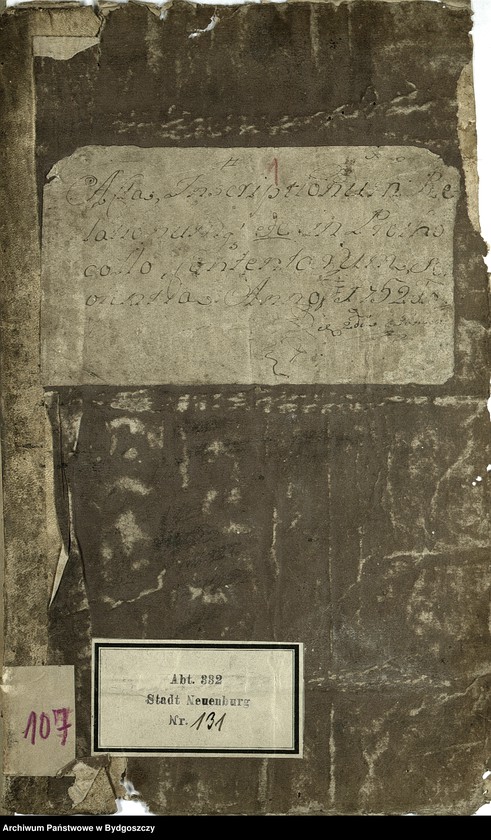 1
Acta Inscriptionum Re
lationumq; etc in Protho
collo Contentarum
Anno 1752
Die
Abt. 332
Stadt Neuenburg
Nr. 131
107
Archiwum Państwowe w Bydgoszczy